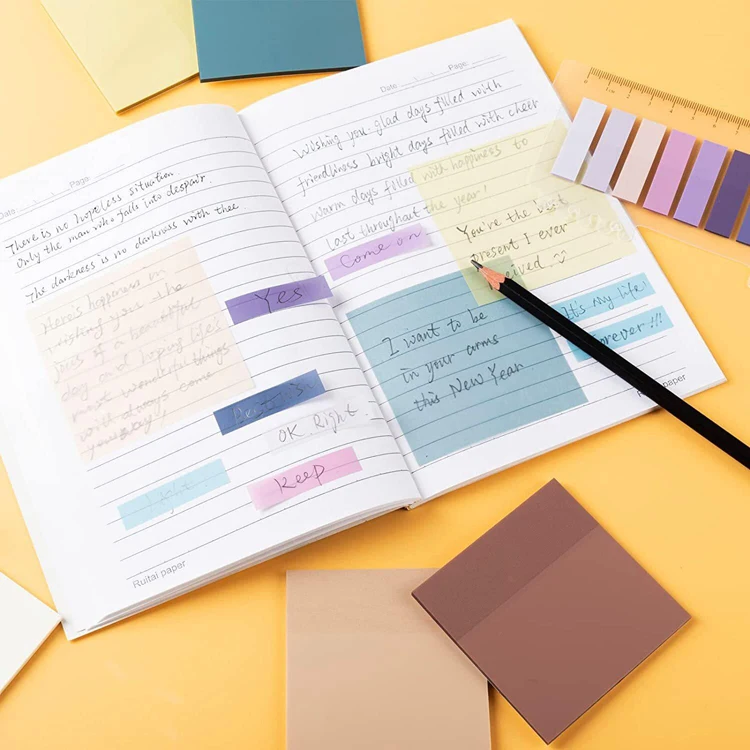 Date Page:
There is no hopeless situation.
Only the man who falls into despair.
The darkness is no darkness with thee
Here's happiness in
wishing you the
joys of a beautiful
day and hoping life's
most wonderful things
will always come
your way!
Yes
OK. Right.
Keep
Light
Ruitai paper
Date Page:
Wishing you glad days filled with
friendliness bright days filled with cheer
warm days filled with happiness to
last throughout the year!
Come on
You've the best
present I ever
ceived.
I want to be
in your arms
this New Year
It's my life
orever!!!
paper